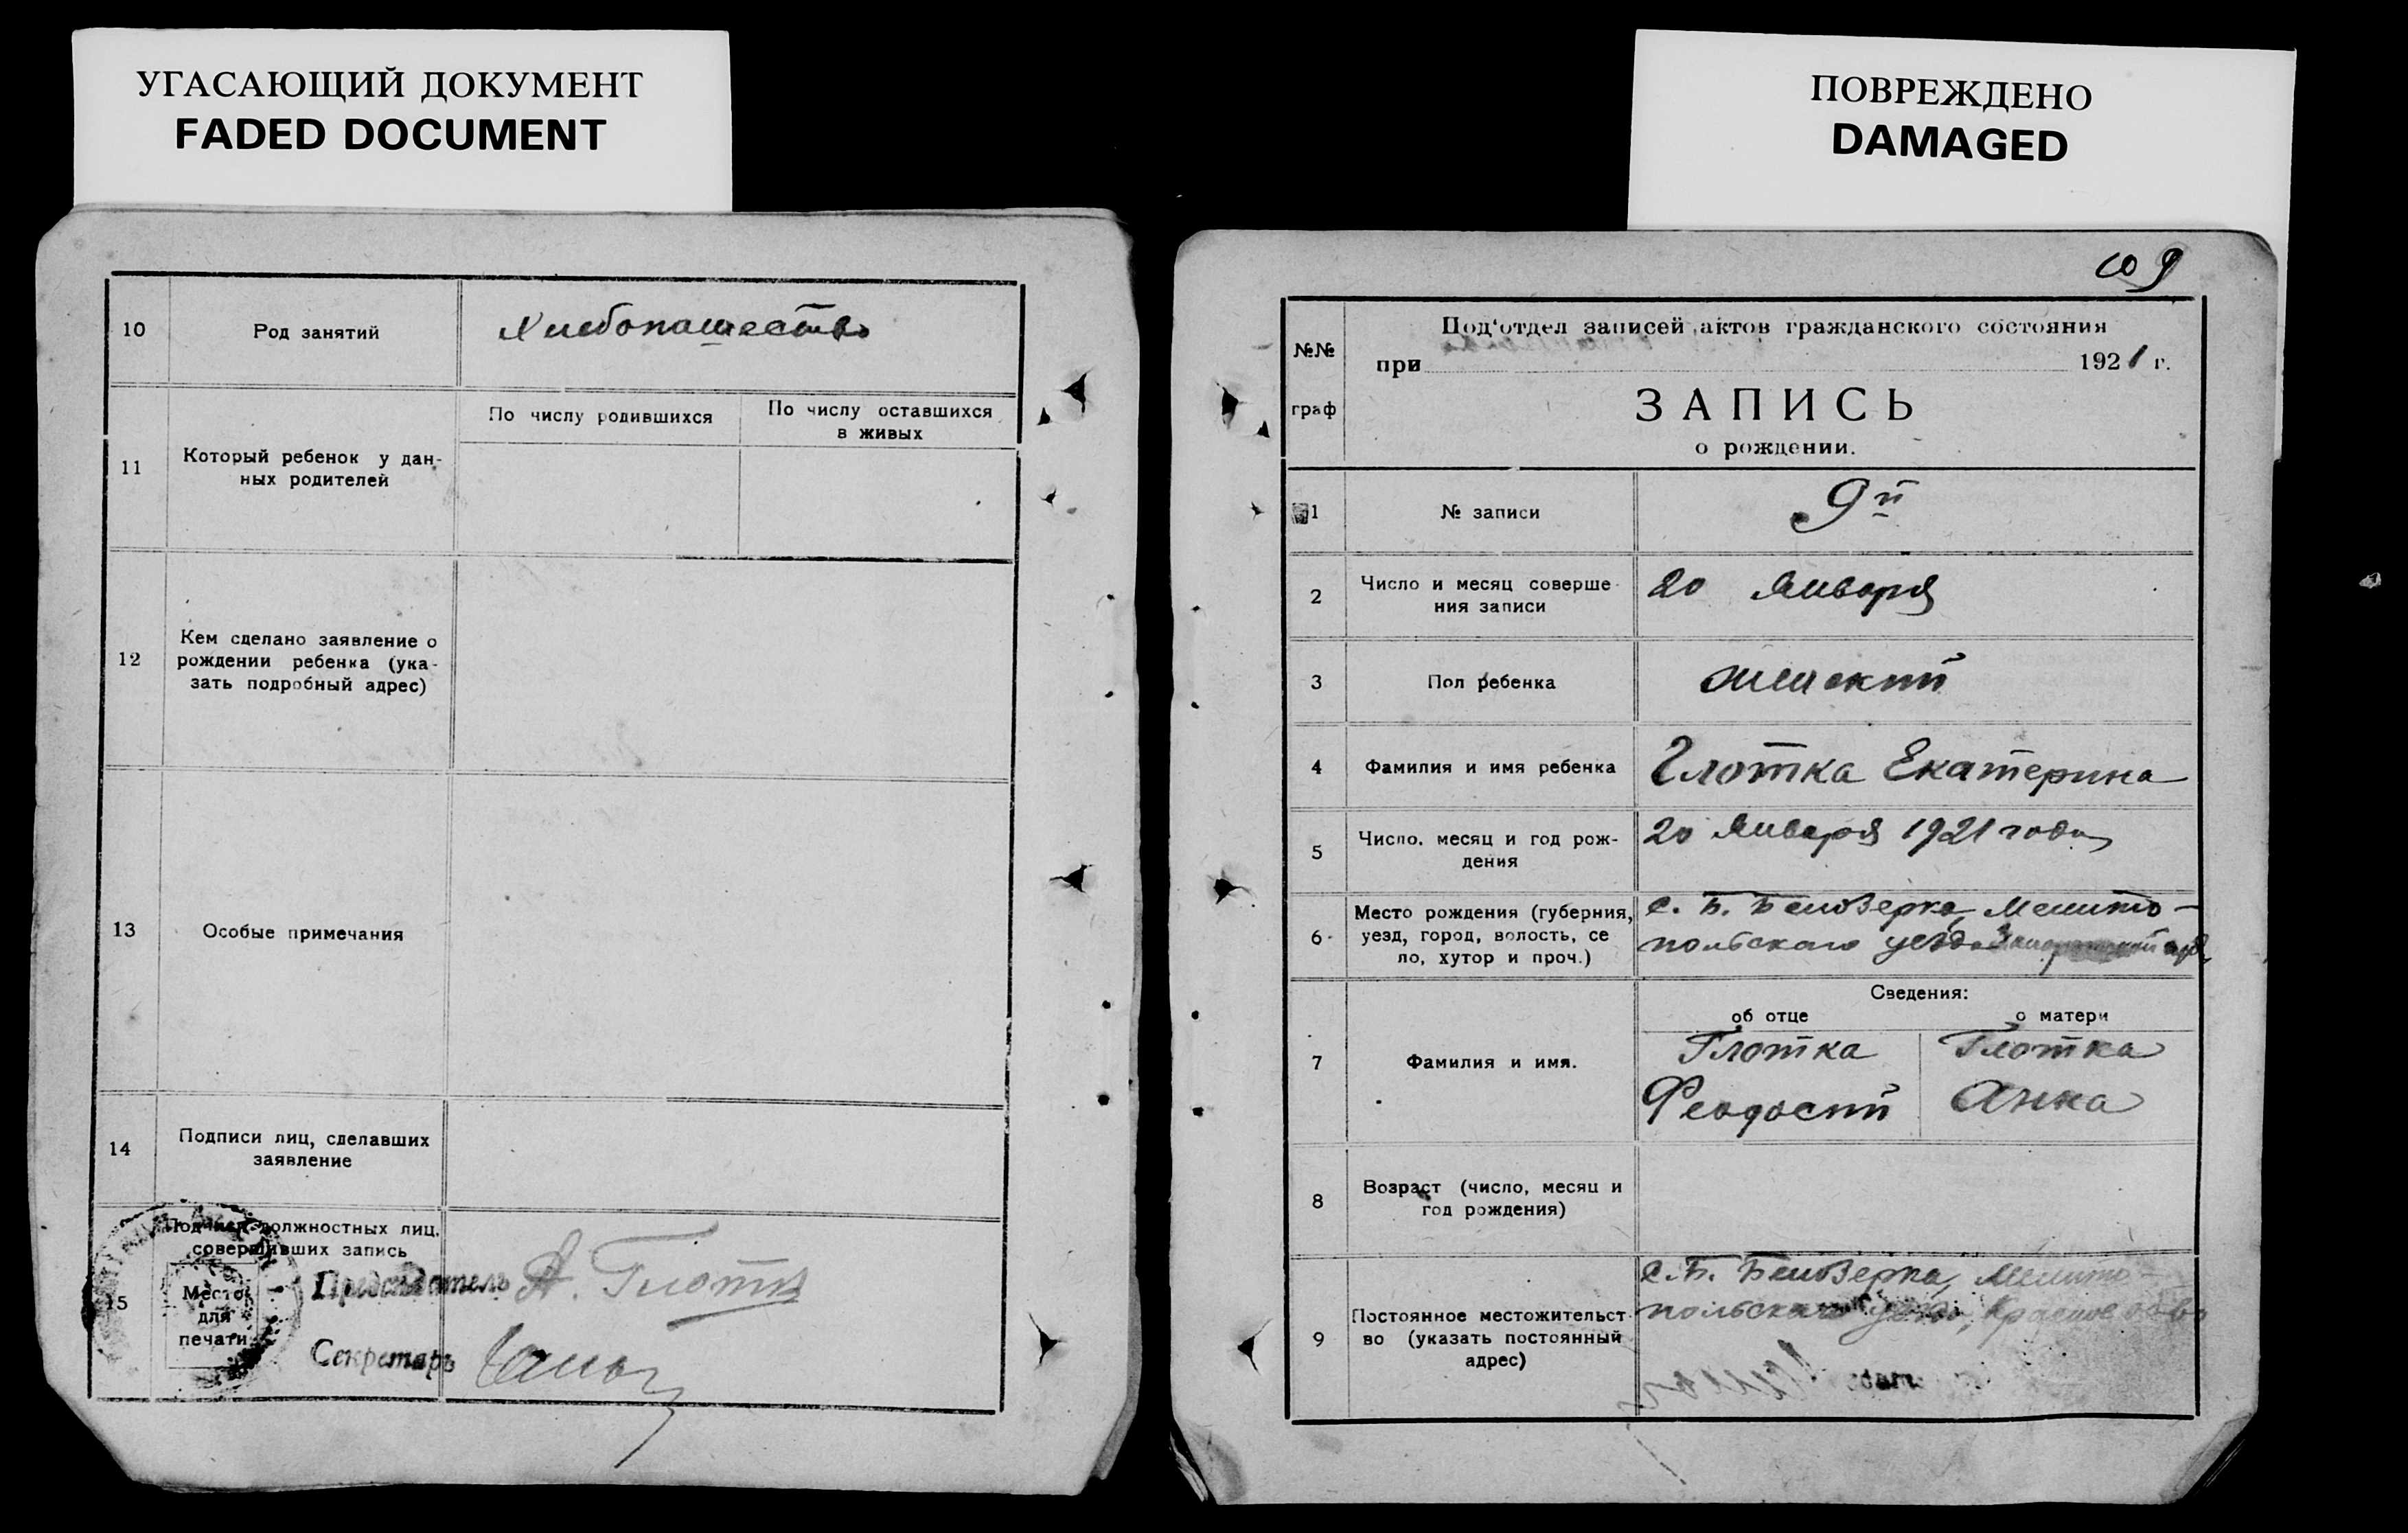 УГАСАЮЩИЙ ДОКУМЕНТ
FADED DOCUMENT
ПОВРЕЖДЕНО
DAMAGED
10
Род занятий
Хлебопашество
11
Который ребенок у дан-
ных родителей
По числу родившихся
По числу оставшихся
в живых
12
Кем сделано заявление о
рождении ребенка (ука-
зать подробный адрес)
13
Особые примечания
14
Подписи лиц, сделавших
заявление
15
Подписи должностных лиц,
совершивших запись
Место
для
печати
Председатель А. Глотка
Секретарь
109
№№
граф
Под‘отдел записей актов гражданского состояния
при 1921 г.
ЗАПИСЬ
о рождении.
1
№ записи
9й
2
Число и месяц соверше-
ния записи
20 Января
3
Пол ребенка
женский
4
Фамилия и имя ребенка
Глотка Екатерина
5
Число, месяц и год рож-
дения
20 Января 1921 года
6
Место рождения (губерния,
уезд, город, волость, се
ло, хутор и проч.)
с. Б. Белозерка, Мелито-
польскаго уезда
Сведения:
об отце
о матери
7
Фамилия и имя.
Глотка
Феодосий
Глотка
Анна
8
Возраст (число, месяц и
год рождения)
9
Постоянное местожительст-
во (указать постоянный
адрес)
с. Б. Белозерка, Мелито-
польскаго уезда,